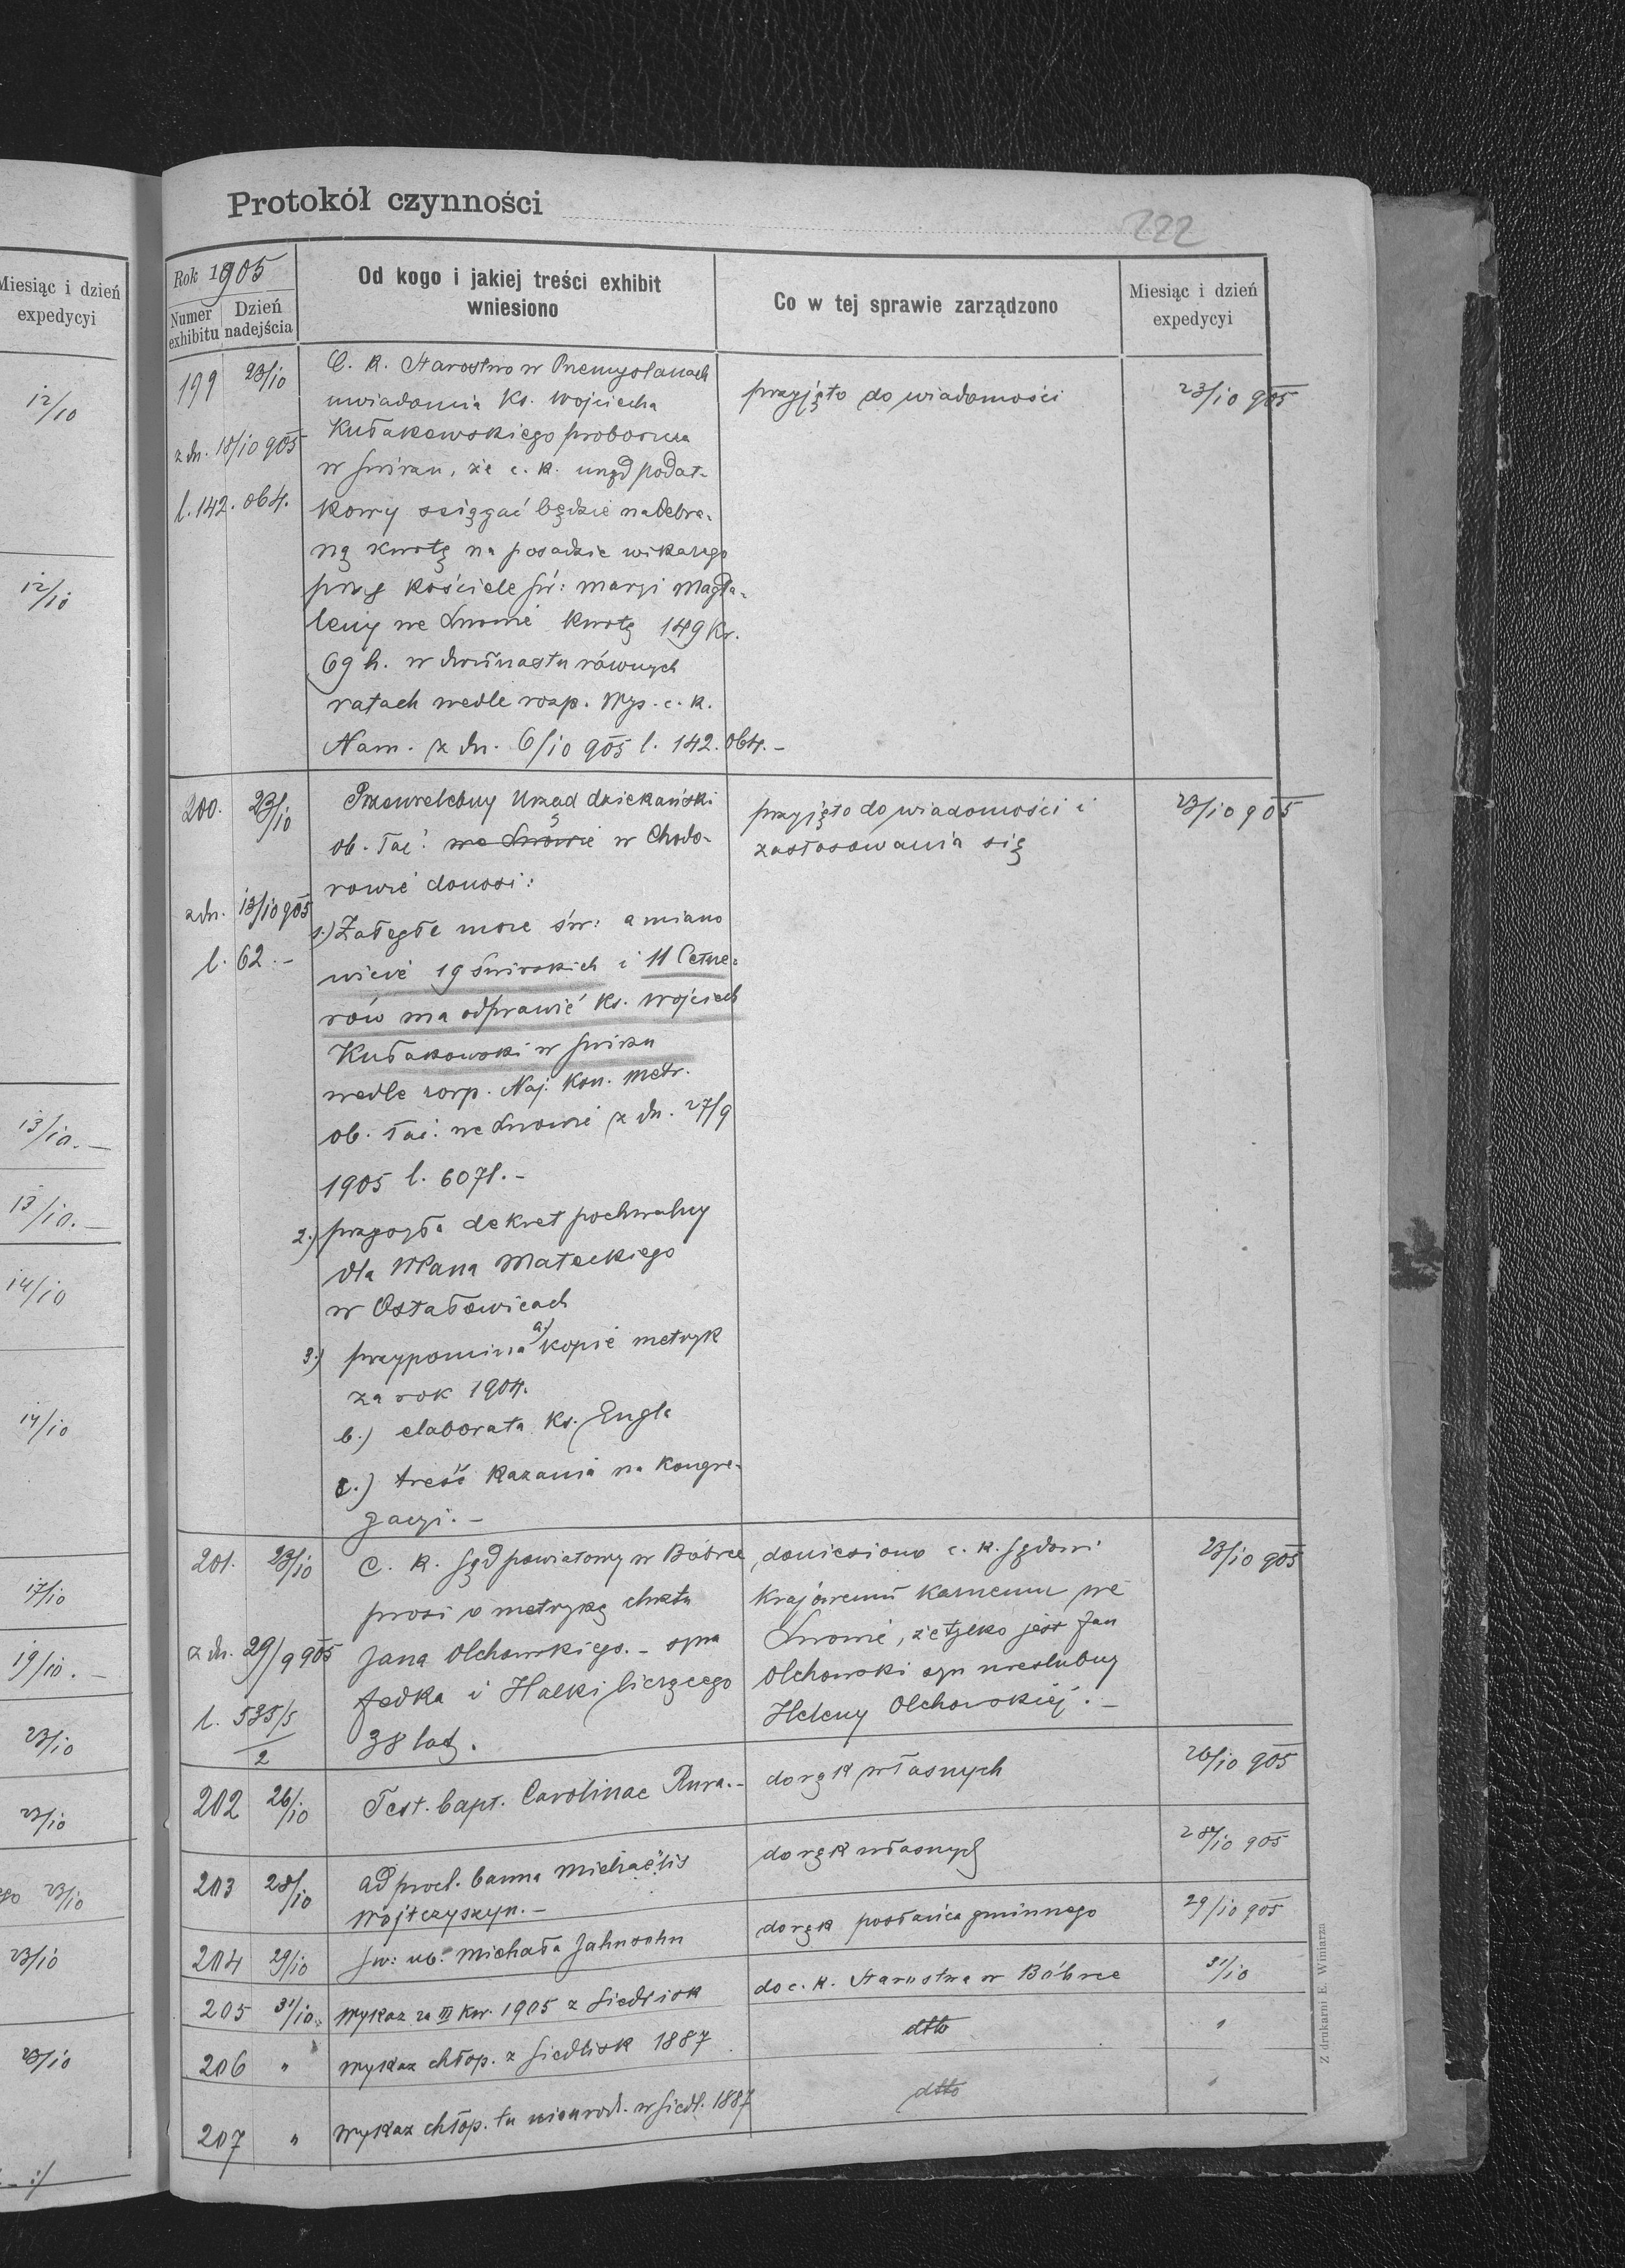 Protokół czynności
222
Miesiąc i dzień
expedycyi
12/10
12/10
13/10.—
13/10.—
14/10
14/10
17/10
19/10.—
23/10
23/10
23/10
23/10
23/10
Rok 1905
Numer exhibitu
Dzień nadejścia
Od kogo i jakiej treści exhibit
wniesiono
Co w tej sprawie zarządzono
Miesiąc i dzień
expedycyi
199 23/10
z dn. 18/10 905
l. 142.064.
C. k. Starostwo w Przemyślanach
uwiadomia Ks. Wojciecha
Kułakowskiego proboszcza
w Świrzu, że c. k. urząd podat-
kowy ściągać będzie nadebra-
ną kwotę na posadzie wikarego
przy kościele św: Maryi Magda-
leny we Lwowie kwotę 149 Kr.
69 h. w dwunastu równych
ratach wedle rozp. Wys. c. k.
Nam. z dn. 6/10 905 l. 142.064.—
przyjęto do wiadomości
23/10 905
200. 23/10
z dn. 13/10 905
l. 62.—
Przewielebny Urząd dziekański
ob. łać: we Lwowie w Chodo-
rowie donosi:
1.) Zaległe msze św: a miano
wicie 19 Świrskich i 11 Cetne-
rów ma odprawić Ks. Wojciech
Kułakowski w Świrzu
wedle rozp. Naj. Kon. Metr.
ob. łać: we Lwowie z dn. 27/9
1905 l. 6071.—
2.) przesyła dekret pochwalny
dla WPana Małeckiego
w Ostałowicach
3.) przypomina a) kopie metryk
za rok 1904.
b.) elaborata Ks. Engla
c.) treść kazania na Kongre-
gacyi.—
przyjęto do wiadomości i
zastosowania się
23/10 905
201. 23/10
z dn. 29/9 905
l. 535/5
2
C. k. Sąd powiatowy w Bóbrce
prosi o metrykę chrztu
Jana Olchowskiego.— syna
Fedka i Halki liczącego
38 lat.
doniesiono c. k. Sądowi
Krajowemu karnemu we
Lwowie, że tylko jest Jan
Olchowski syn nieślubny
Heleny Olchowskiej.—
23/10 905
202 26/10 Test. bapt. Carolinae Rura.— do rąk własnych 26/10 905
203 28/10 ad procl. banna Michaëlis
Wojtczyszyn.—
do rąk własnych 28/10 905
204 29/10 Św: ub. Michała Jahnsohn do rąk posłańca gminnego 29/10 905
205 31/10 Wykaz za III kw. 1905 z Siedlisk do c. k. Starostwa w Bóbrce 31/10
206 " Wykaz chłop. z Siedlisk 1887 dtto "
207 " Wykaz chłop. tu nieurodz. w Siedl. 1887 dtto "
Z drukarni E. Winiarza